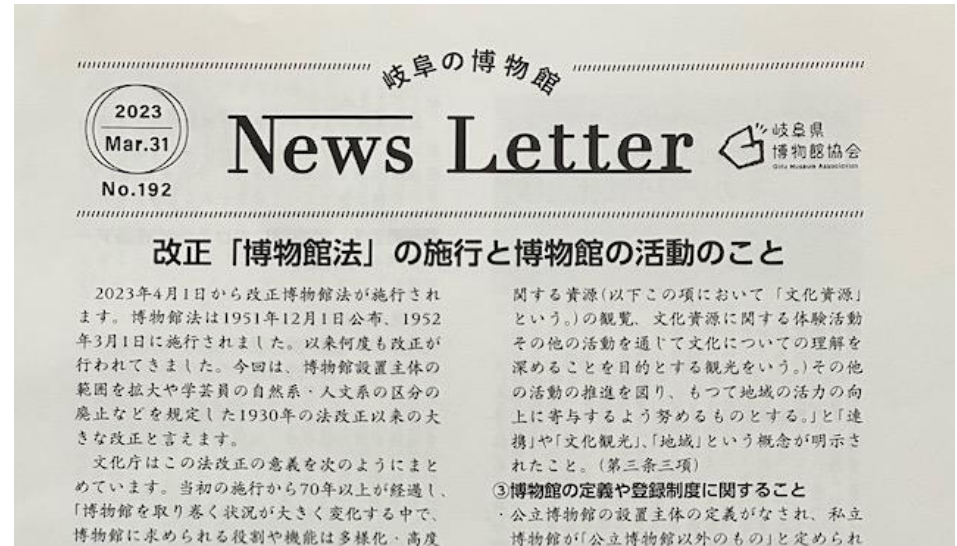 岐阜の博物館
2023
Mar.31
No.192
News Letter
岐阜県
博物館協会
Gifu Museum Association
改正「博物館法」の施行と博物館の活動のこと
2023年4月1日から改正博物館法が施行され
ます。博物館法は1951年12月1日公布、1952
年3月1日に施行されました。以来何度も改正が
行われてきました。今回は、博物館設置主体の
範囲を拡大や学芸員の自然系・人文系の区分の
廃止などを規定した1930年の法改正以来の大
きな改正と言えます。
文化庁はこの法改正の意義を次のようにまと
めています。当初の施行から70年以上が経過し、
「博物館を取り巻く状況が大きく変化する中で、
博物館に求められる役割や機能は多様化・高度
関する資源(以下この項において「文化資源」
という。)の観覧、文化資源に関する体験活動
その他の活動を通じて文化についての理解を
深めることを目的とする観光をいう。)その他
の活動の推進を図り、もつて地域の活力の向
上に寄与するよう努めるものとする。」と「連
携」や「文化観光」、「地域」という概念が明示さ
れたこと。(第三条三項)
③博物館の定義や登録制度に関すること
・公立博物館の設置主体の定義がなされ、私立
博物館が「公立博物館以外のもの」と定められ